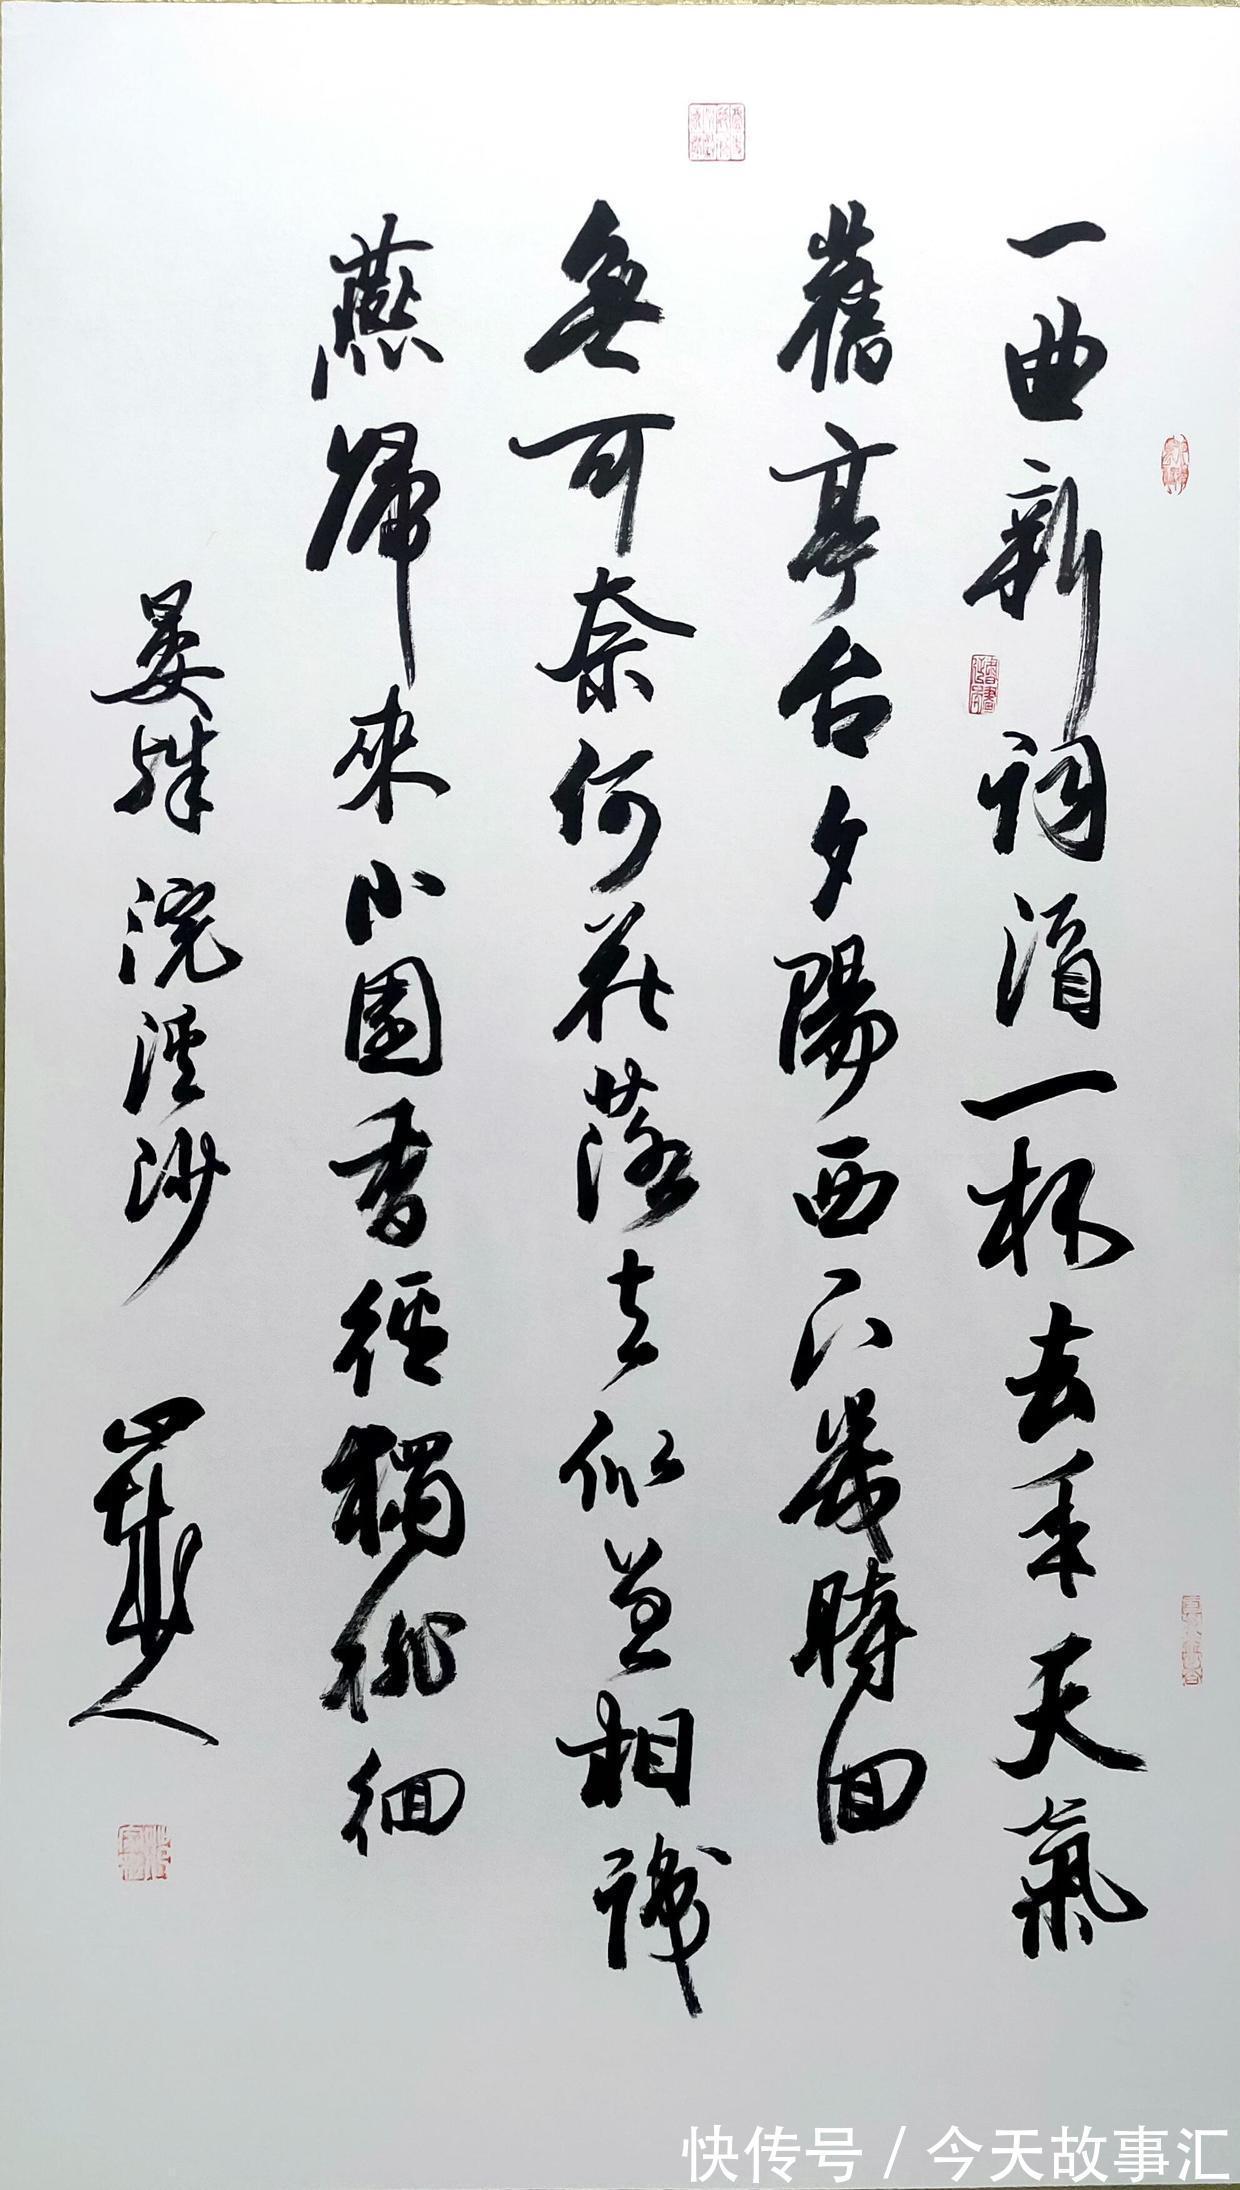 一曲新詞酒一杯去年天氣
舊亭台夕陽西下幾時回
無可奈何花落去似曾相識
燕歸來小園香徑獨徘徊
晏殊 浣溪沙
快传号 / 今天故事汇